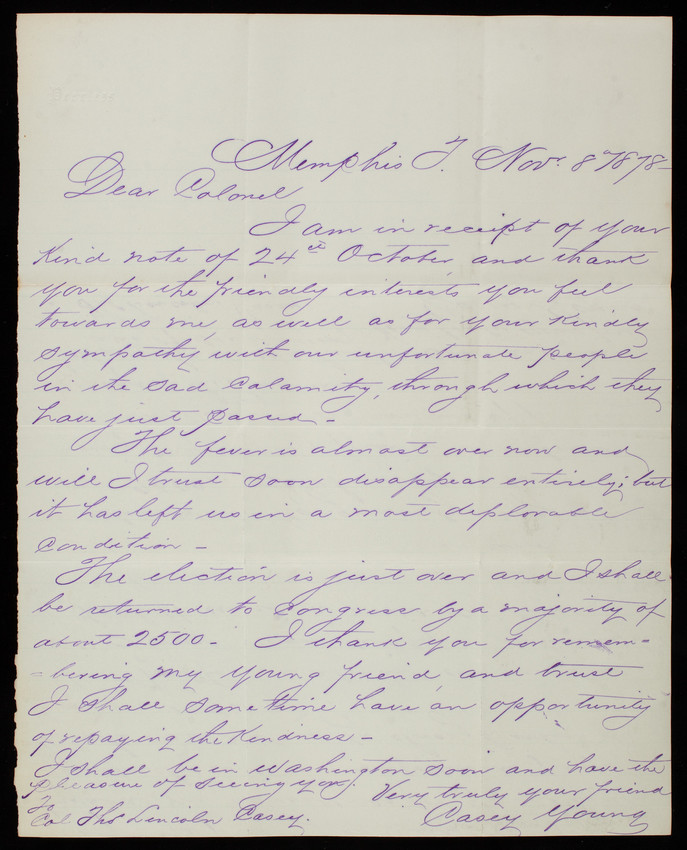 Memphis T. Nov. 8 1878-
Dear Colonel
I am in receipt of your
kind note of 24th October, and thank
you for the friendly interests you feel
towards me, as well as for your kindly
sympathy with our unfortunate people
in the sad calamity, through which they
have just passed-
The fever is almost over now and
will I trust soon disappear entirely; but
it has left us in a most deplorable
condition-
The election is just over and I shall
be returned to Congress by a majority of
about 2500- I thank you for remem-
-bering my young friend, and trust
I shall some time have an opportunity
of repaying the kindness-
I shall be in Washington soon and have the
pleasure of seeing you. Very truly your friend
To Casey Young
Col Thos Lincoln Casey.